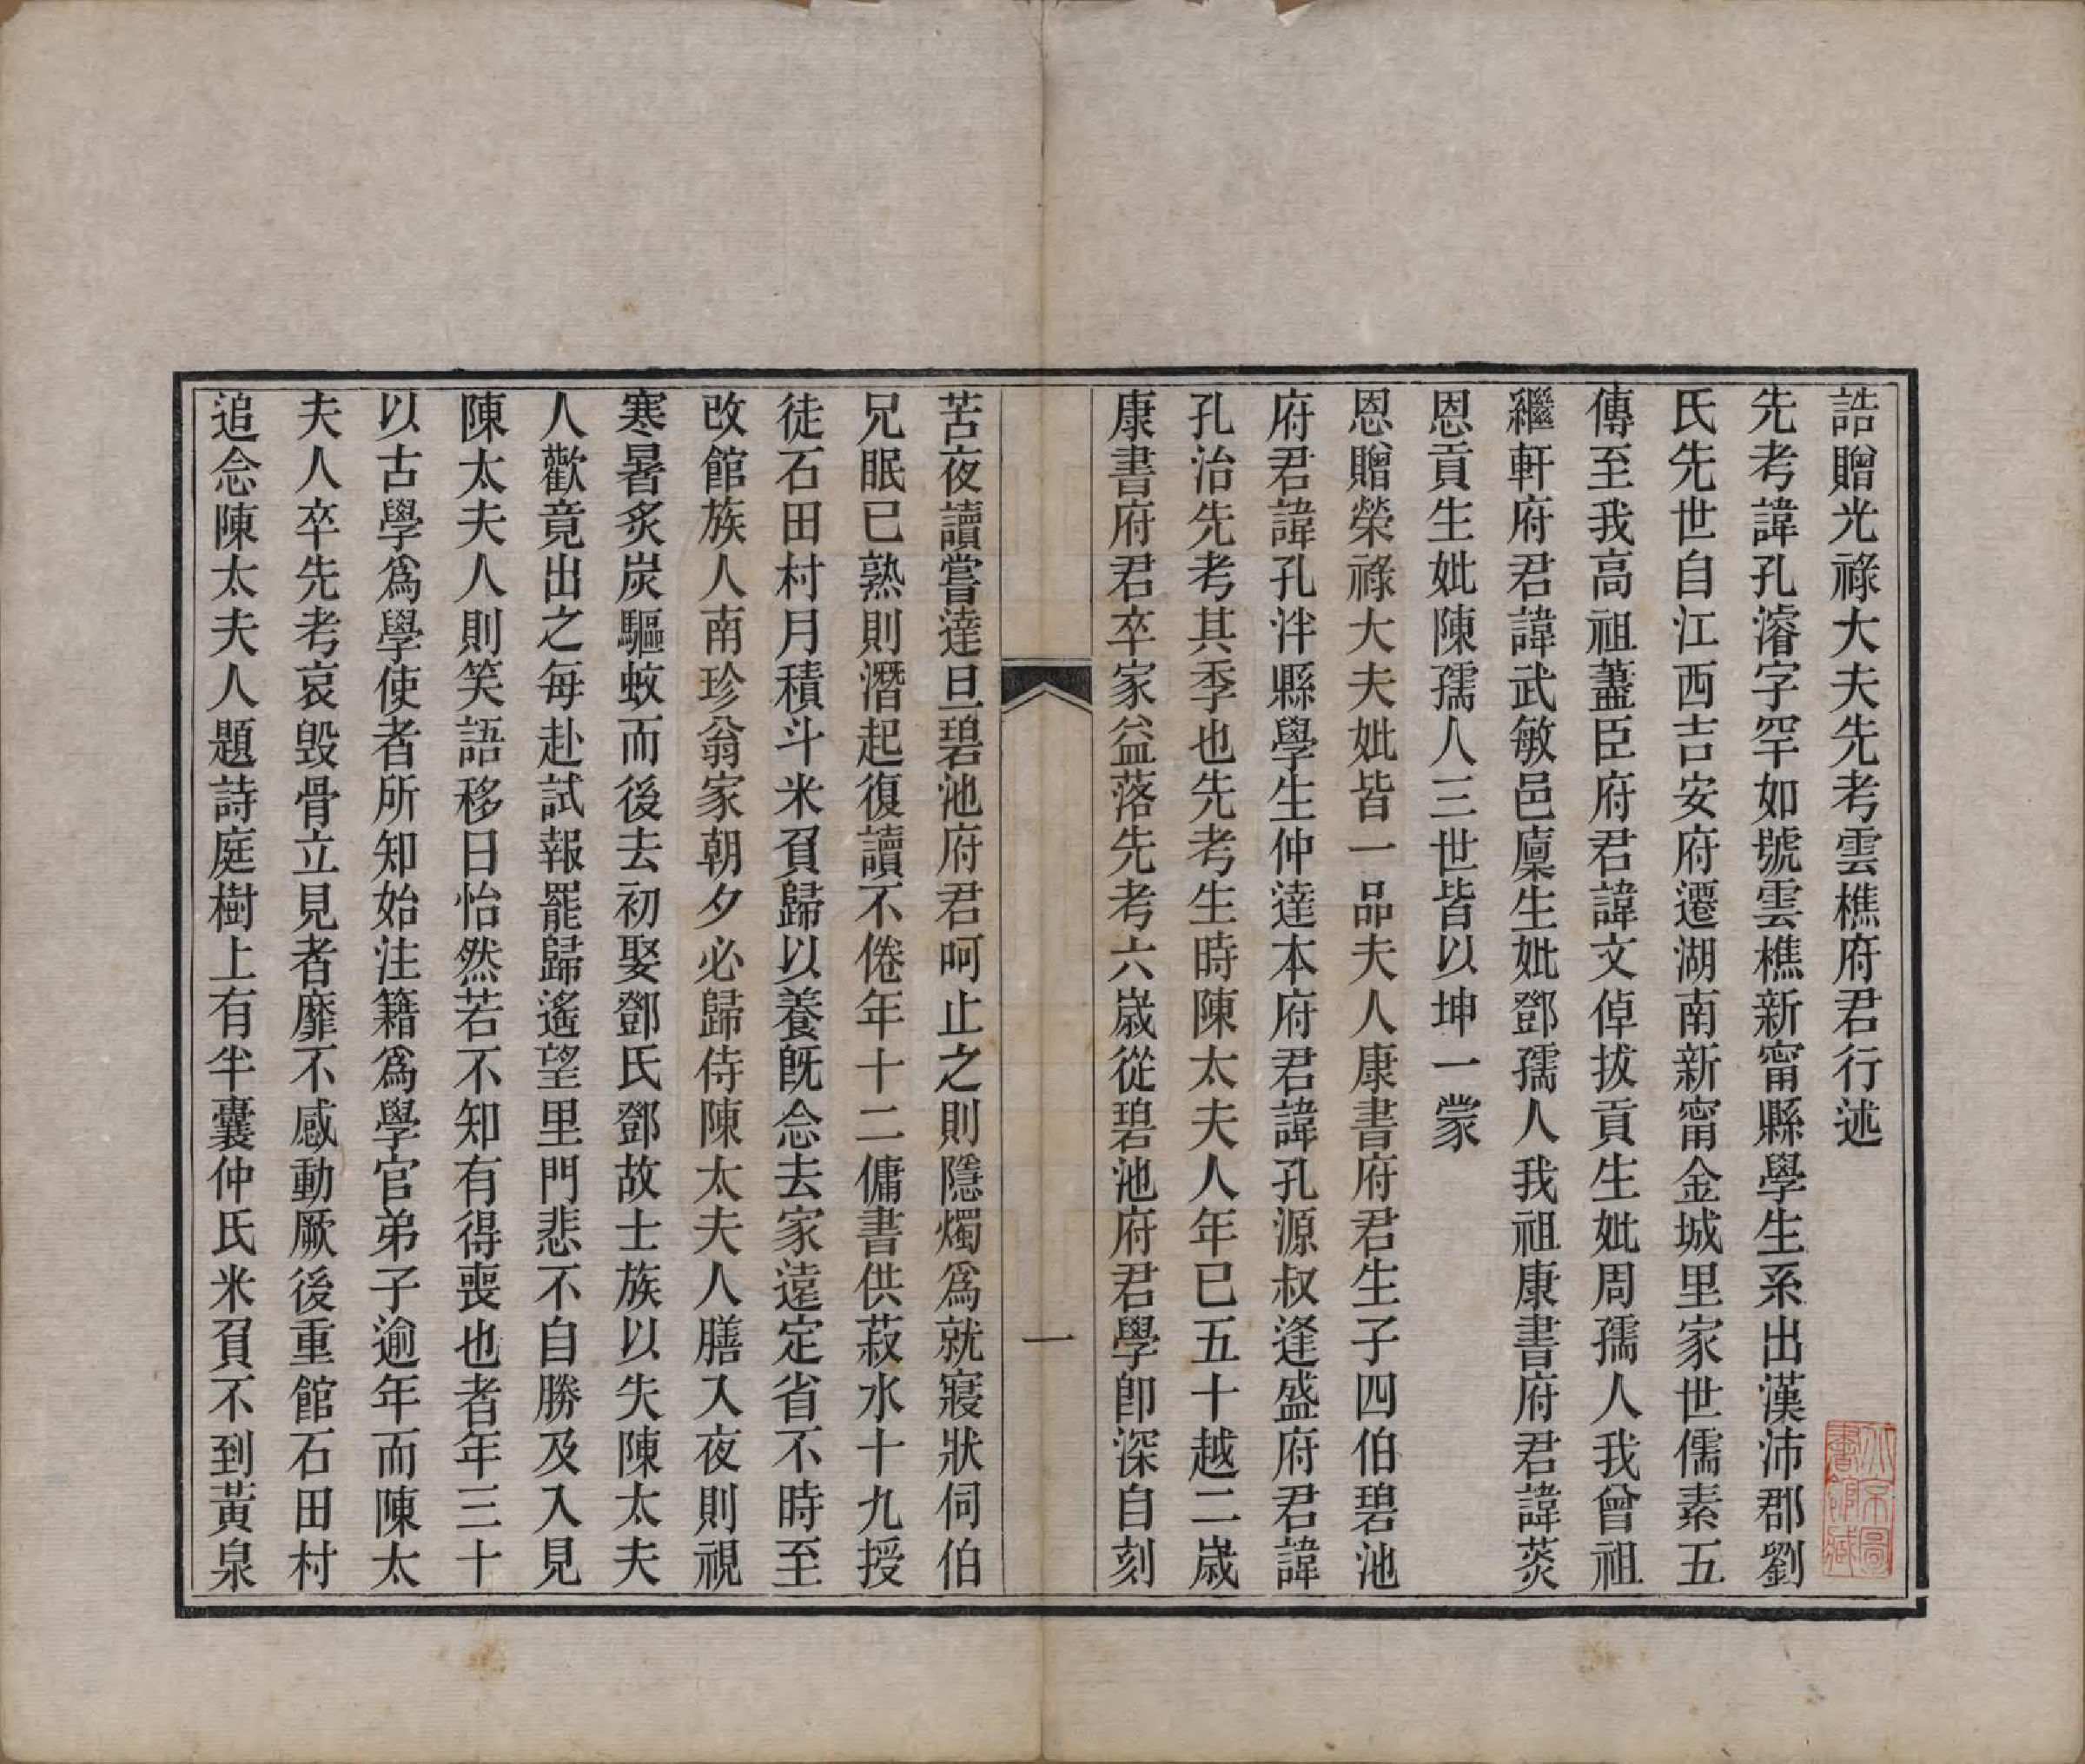 誥贈光祿大夫先考雲樵府君行述
先考諱孔濬字罕如號雲樵新甯縣學生系出漢沛郡劉
氏先世自江西吉安府遷湖南新甯金城里家世儒素五
傳至我高祖藎臣府君諱文倬拔貢生妣周孺人我曾祖
繼軒府君諱武敏邑廩生妣鄧孺人我祖康書府君諱莢
恩貢生妣陳孺人三世皆以坤一蒙
恩贈榮祿大夫妣皆一品夫人康書府君生子四伯碧池
府君諱孔泮縣學生仲達本府君諱孔源叔逢盛府君諱
孔治先考其季也先考生時陳太夫人年已五十越二歲
康書府君卒家益落先考六歲從碧池府君學卽深自刻
苦夜讀嘗達旦碧池府君呵止之則隱燭爲就寢狀伺伯
兄眠已熟則潛起復讀不倦年十二傭書供菽水十九授
徒石田村月積斗米負歸以養旣念去家遠定省不時至
改館族人南珍翁家朝夕必歸侍陳太夫人膳入夜則視
寒暑炙炭驅蚊而後去初娶鄧氏鄧故士族以失陳太夫
人歡竟出之每赴試報罷歸遙望里門悲不自勝及入見
陳太夫人則笑語移日怡然若不知有得喪也者年三十
以古學爲學使者所知始注籍爲學官弟子逾年而陳太
夫人卒先考哀毀骨立見者靡不感動厥後重館石田村
追念陳太夫人題詩庭樹上有半囊仲氏米負不到黃泉
一
北京圖書館藏